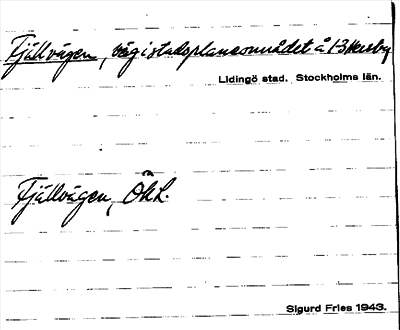 Fjällvägen, väg i stadsplaneområdet å 1-3 Hersby
Lidingö stad. Stockholms län.
Fjällvägen, ÖhL.
Sigurd Fries 1943.